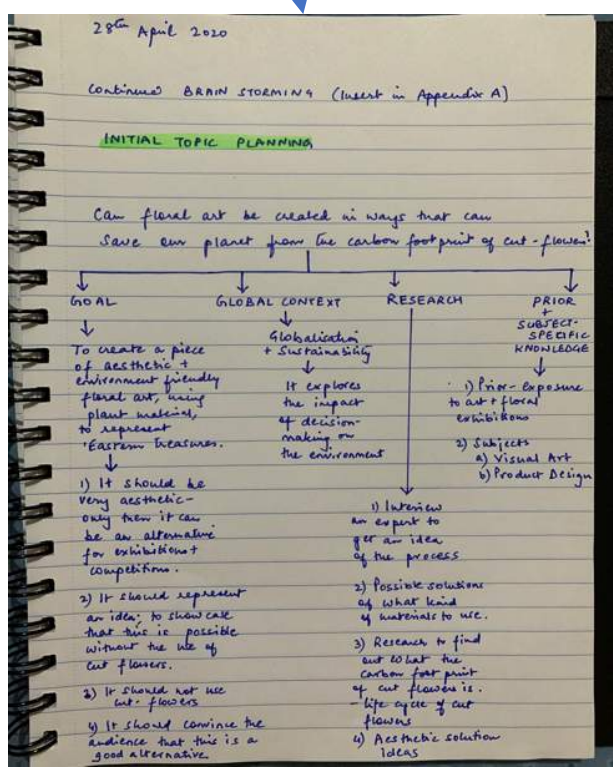 28th April 2020
Continued BRAIN STORMING (Insert in Appendix A)
INITIAL TOPIC PLANNING
Can floral art be created in ways that can
save our planet from the carbon footprint of cut-flowers?
GOAL
To create a piece
of aesthetic +
environment friendly
floral art, using
plant material,
to represent
'Eastern Treasures.
1) It should be
very aesthetic-
only then it can
be an alternative
for exhibitions +
competitions.
2) It should represent
an idea; to showcase
that this is possible
without the use of
cut flowers.
3) It should not use
cut-flowers
4) It should convince the
audience that this is a
good alternative
GLOBAL CONTEXT
Globalisation
+ Sustainability
It explores
the impact
of decision-
making on
the environment
RESEARCH
1) Interview
an expert to
get an idea
of the process
2) Possible solutions
of what kind
of materials to use.
3) Research to find
out what the
carbon foot print
of cut flowers is.
- life cycle of cut
flowers
4) Aesthetic solution
ideas
PRIOR
+
SUBJECT-
SPECIFIC
KNOWLEDGE
1) Prior-exposure
to art + floral
exhibitions
2) Subjects
a) Visual Art
b) Product Design